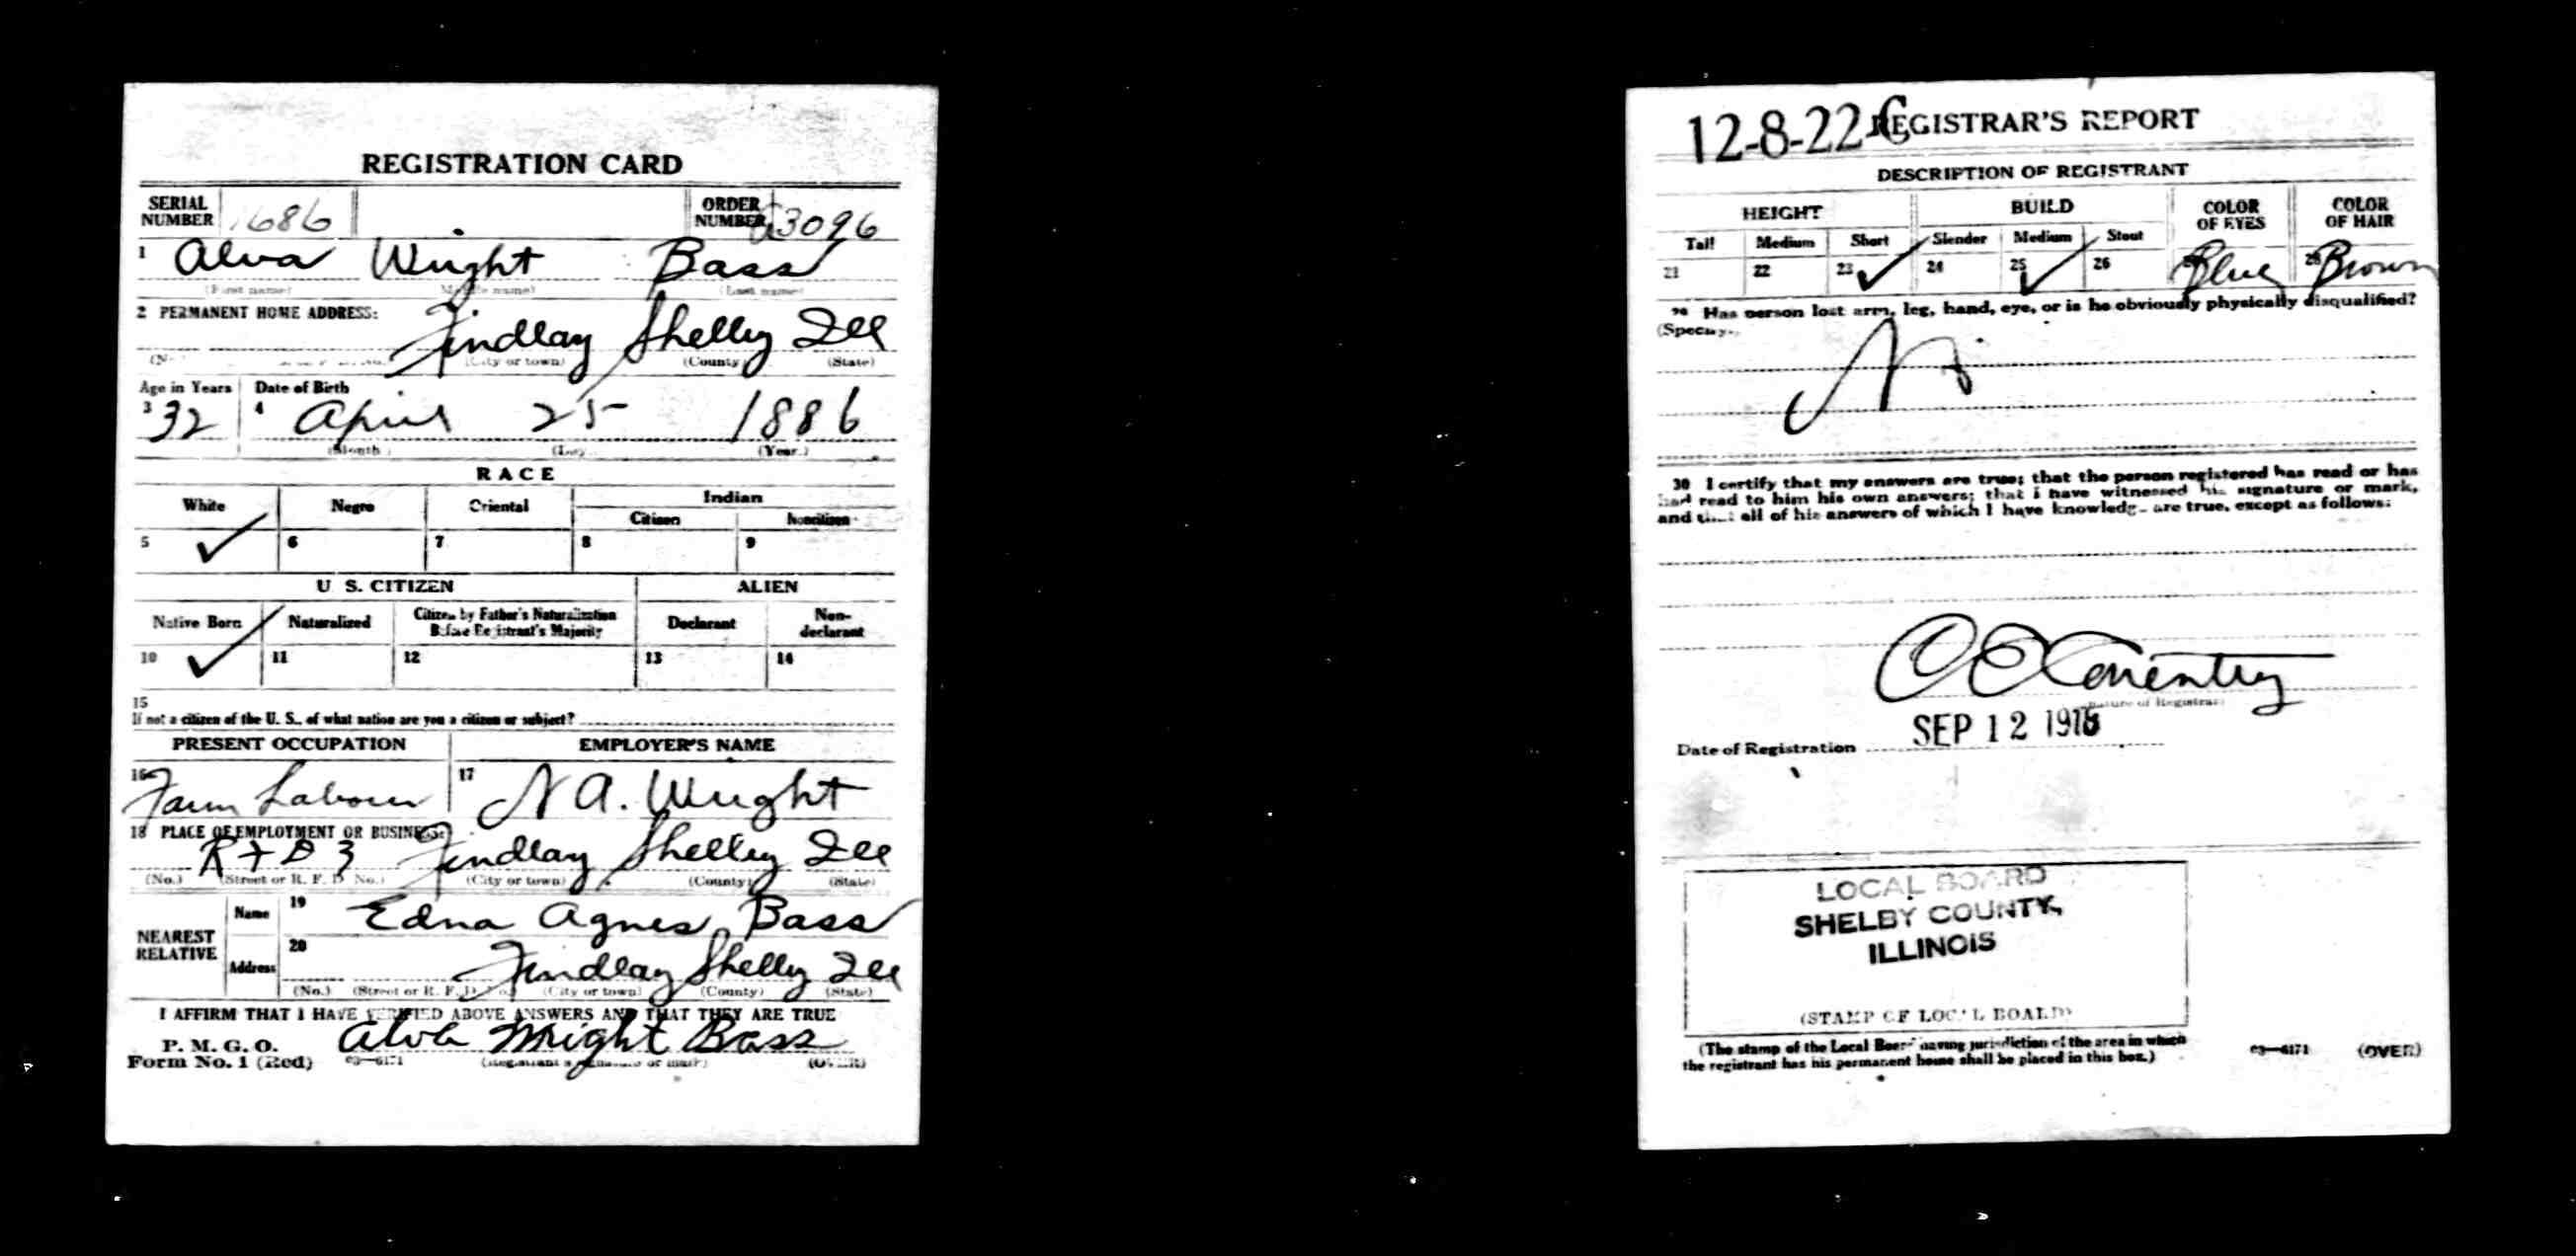 REGISTRATION CARD
SERIAL NUMBER 1686 ORDER NUMBER A3096
1 Alva Wright Bass
(First name) (Middle name) (Last name)
2 PERMANENT HOME ADDRESS:
Findlay Shelby Ill
(No.) (City or town) (County) (State)
Age in Years Date of Birth
3 32 4 April 25 1886
(Month) (Day) (Year)
RACE
White Negro Oriental Indian
Citizen Noncitizen
5 ✓ 6 7 8 9
U. S. CITIZEN ALIEN
Native Born Naturalized Citizen by Father's Naturalization Before Registrant's Majority Declarant Non-declarant
10 ✓ 11 12 13 14
15
If not a citizen of the U. S., of what nation are you a citizen or subject?
PRESENT OCCUPATION EMPLOYER'S NAME
16 Farm Labour 17 N A. Wright
18 PLACE OF EMPLOYMENT OR BUSINESS:
R F D 3 Findlay Shelby Ill
(No.) (Street or R. F. D. No.) (City or town) (County) (State)
NEAREST RELATIVE
Name 19 Edna Agnes Bass
Address 20 Findlay Shelby Ill
(No.) (Street or R. F. D. No.) (City or town) (County) (State)
I AFFIRM THAT I HAVE VERIFIED ABOVE ANSWERS AND THAT THEY ARE TRUE
P. M. G. O.
Form No. 1 (Red) 03—6171 Alva Wright Bass
(Registrant's signature or mark) (OVER)
12-8-22-C REGISTRAR'S REPORT
DESCRIPTION OF REGISTRANT
HEIGHT BUILD COLOR OF EYES COLOR OF HAIR
Tall Medium Short Slender Medium Stout
21 22 23 ✓ 24 25 ✓ 26 Blue 28 Brown
29 Has person lost arm, leg, hand, eye, or is he obviously physically disqualified?
(Specify.)
No
30 I certify that my answers are true; that the person registered has read or has
had read to him his own answers; that I have witnessed his signature or mark,
and that all of his answers of which I have knowledge are true, except as follows:
O E Coventry
(Signature of Registrar)
Date of Registration SEP 12 1918
LOCAL BOARD
SHELBY COUNTY,
ILLINOIS
(STAMP OF LOCAL BOARD)
(The stamp of the Local Board having jurisdiction of the area in which
the registrant has his permanent home shall be placed in this box.)
03—6171 (OVER)